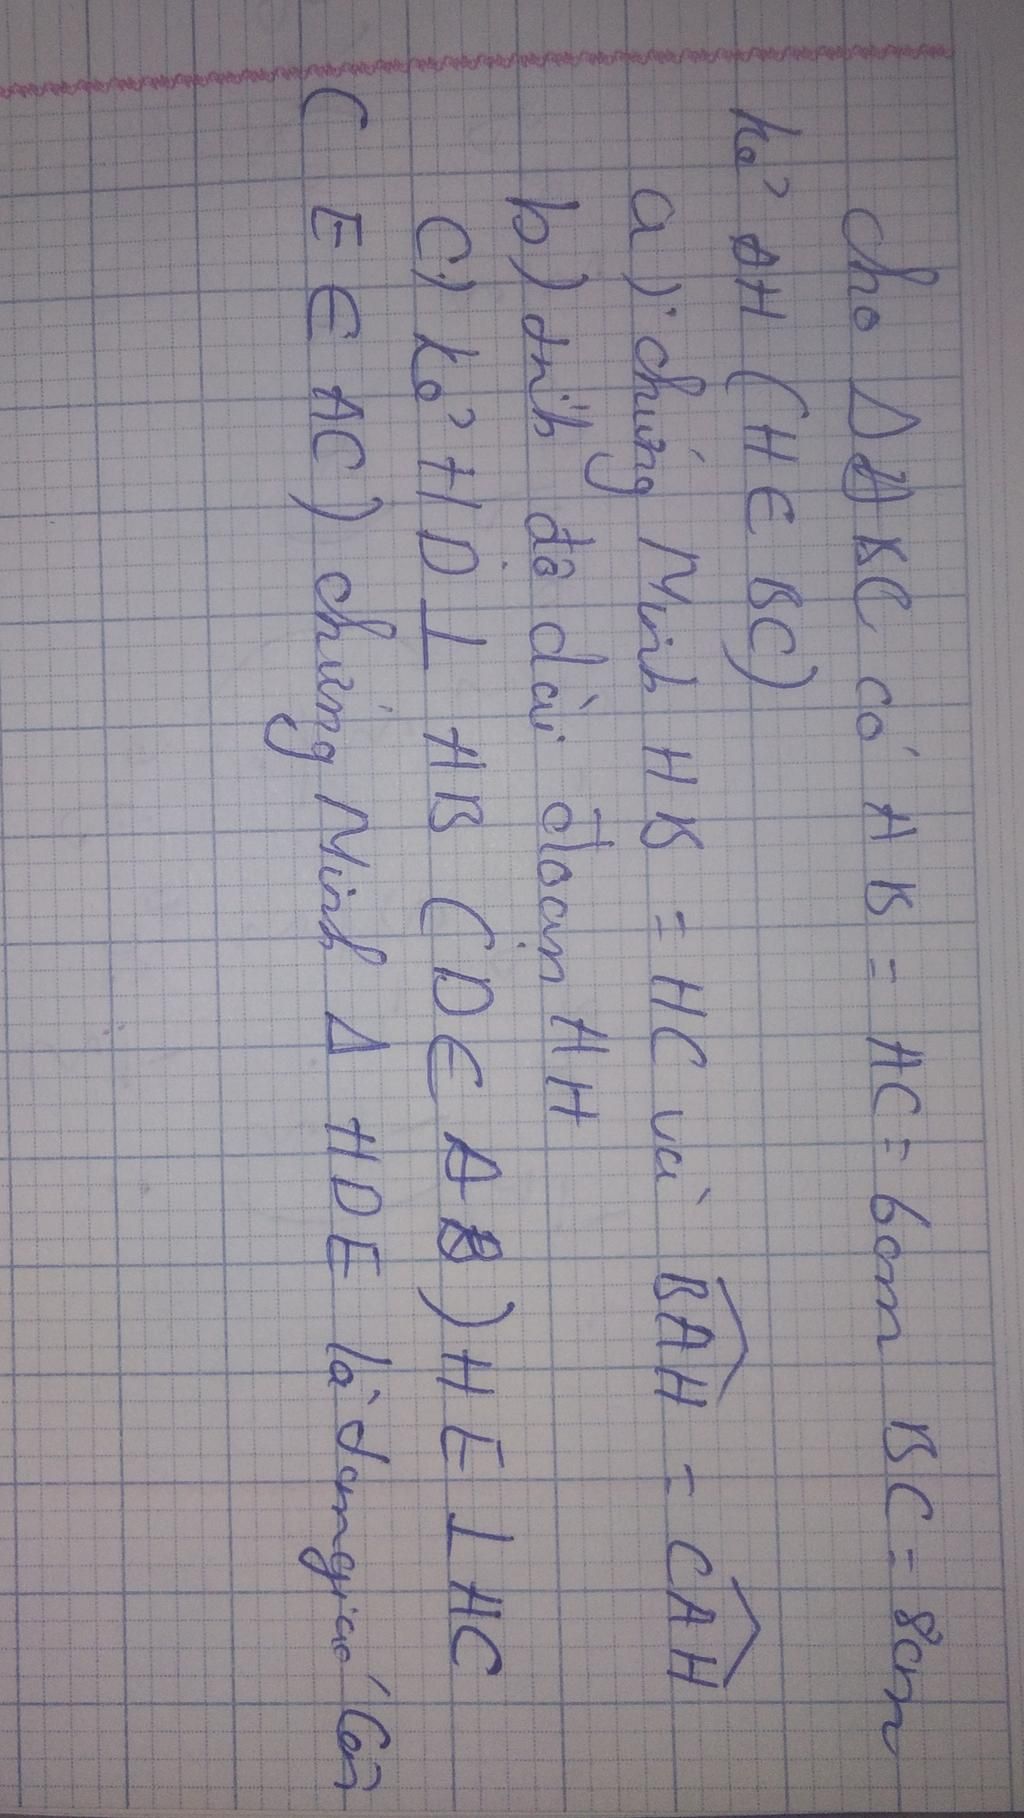 Cho Δ ABC có AB = AC = 6cm BC = 8cm
kẻ AH (H ∈ BC)
a) chứng Minh HB = HC và BAH = CAH
b) tính độ dài đoạn AH
C) kẻ HD ⊥ AB (D ∈ AB) HE ⊥ AC
( E ∈ AC) chứng Minh Δ HDE là tam giác Cân